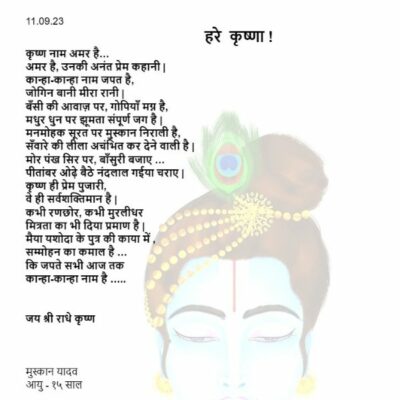 11.09.23
हरे कृष्णा !
कृष्ण नाम अमर है...
अमर है, उनकी अनंत प्रेम कहानी |
कान्हा-कान्हा नाम जपत है,
जोगिन बानी मीरा रानी |
बँसी की आवाज़ पर, गोपियाँ मग्न है,
मधुर धुन पर झूमता संपूर्ण जग है |
मनमोहक सूरत पर मुस्कान निराली है,
सँवारे की लीला अचंभित कर देने वाली है |
मोर पंख सिर पर, बाँसुरी बजाए ...
पीतांबर ओढ़े बैठे नंदलाल गईया चराए |
कृष्ण ही प्रेम पुजारी,
वे ही सर्वशक्तिमान है |
कभी रणछोर, कभी मुरलीधर
मित्रता का भी दिया प्रमाण है |
मैया यशोदा के पुत्र की काया में ,
सम्मोहन का कमाल है ...
कि जपते सभी आज तक
कान्हा-कान्हा नाम है .....
जय श्री राधे कृष्ण
मुस्कान यादव
आयु - १५ साल